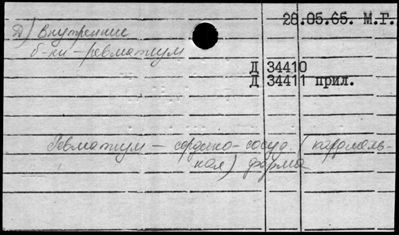 28.05.65. М.Г.
Д) Внутренние
б-ни - ревматизм
Д 34410
Д 34411 прил.
Ревматизм - сердечно-сосуд. (
ная) форма